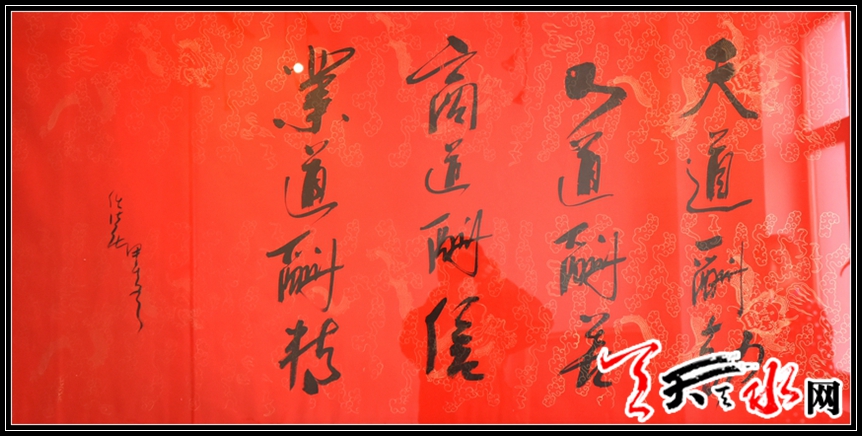 天道酬勤
道酬善
商道酬信
業道酬精
天天天水网